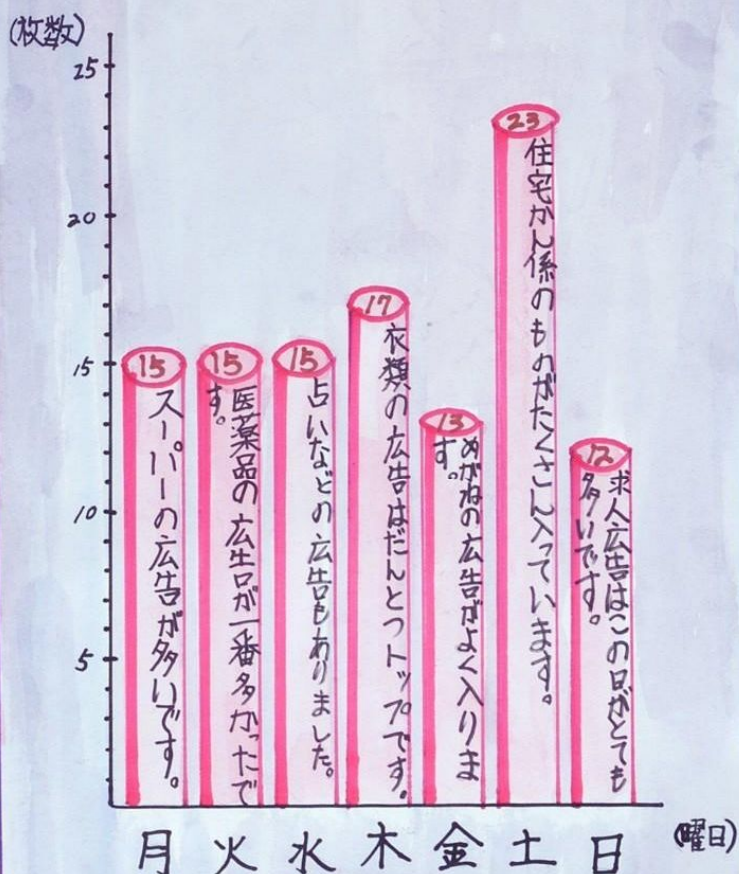 (枚数)
25
20
15
10
5
15
スーパーの広告が多いです。
15
医薬品の広告が一番多かったで
す。
15
占いなどの広告もありました。
17
衣類の広告はだんとつトップです。
13
めがねの広告がよく入りま
す。
23
住宅かん係のものがたくさん入っています。
12
求人広告はこの日がとても
多いです。
月 火 水 木 金 土 日
(曜日)